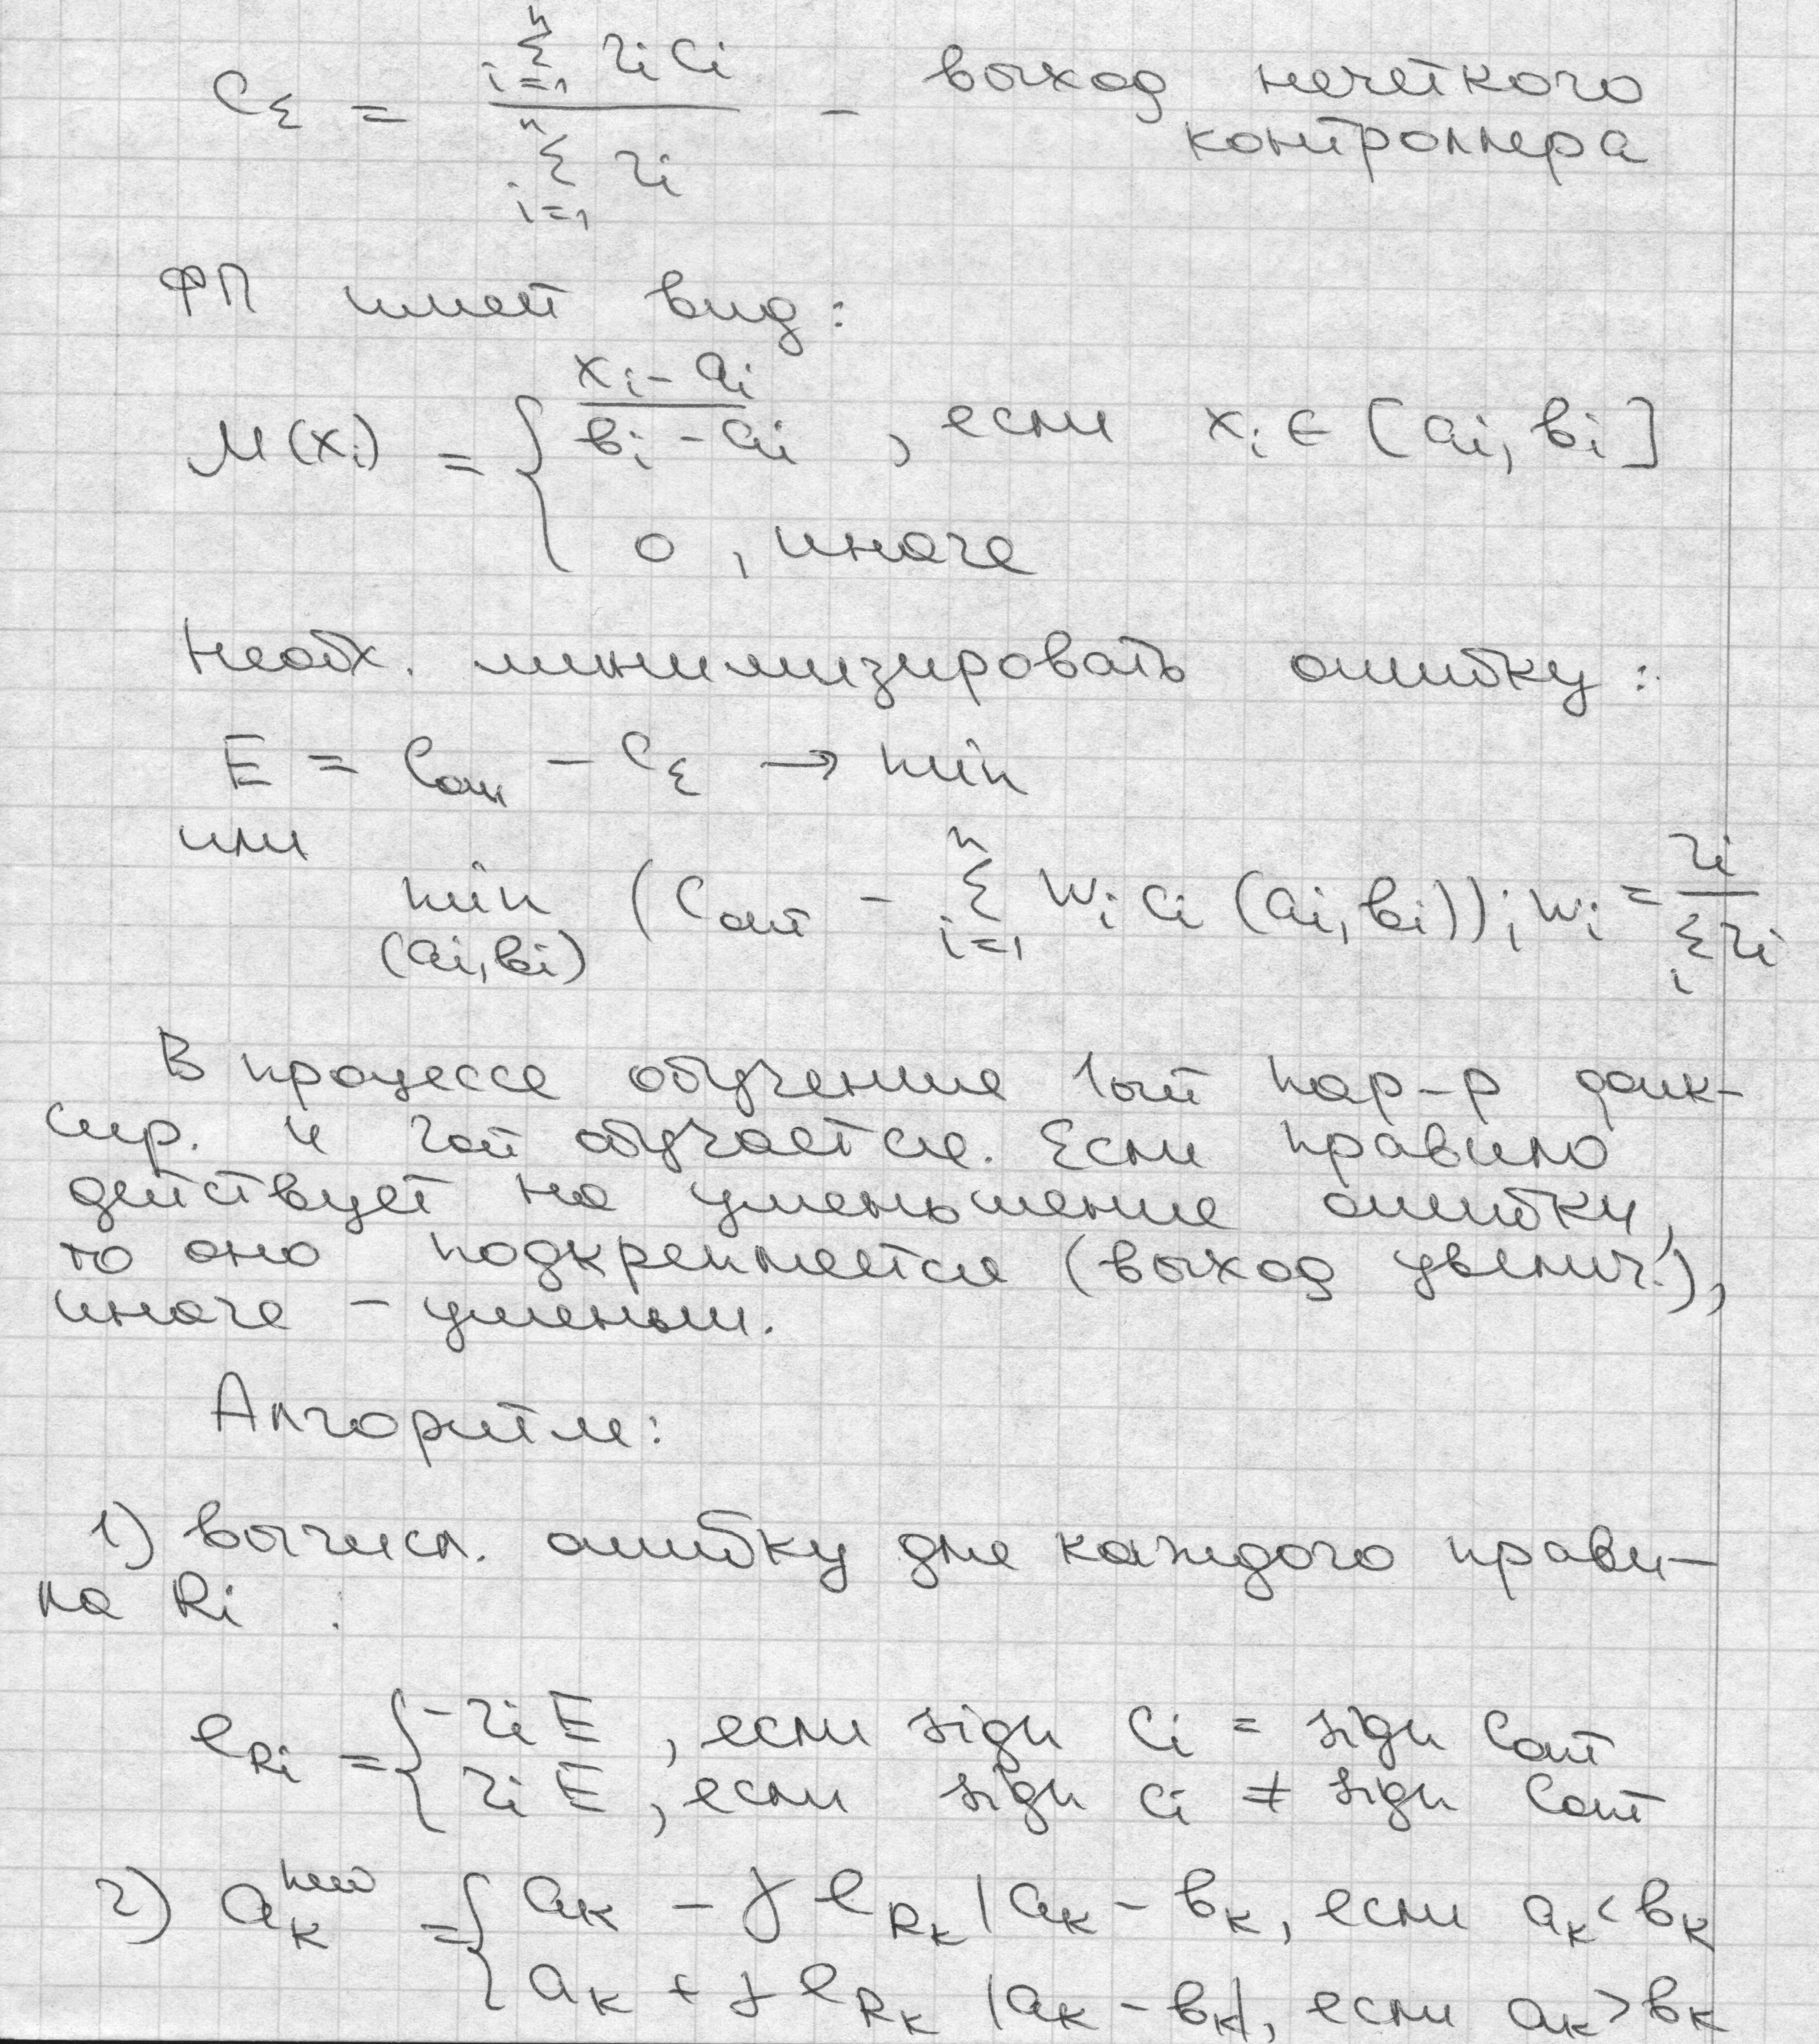 C_Σ = \frac{\sum_{i=1}^{n} r_i c_i}{\sum_{i=1}^{n} r_i} – выход нечеткого
контроллера
ФП имеет вид:
μ(x_i) = { \frac{x_i - a_i}{b_i - a_i} , если x_i ∈ [a_i, b_i]
0 , иначе
Необх. минимизировать ошибку:
E = C_{опт} – C_Σ → min
или
min_{(a_i, b_i)} (C_{опт} – \sum_{i=1}^{n} w_i c_i (a_i, b_i)); w_i = \frac{r_i}{\sum_i r_i}
В процессе обучения 1ый пар-р фик-
сир. и 2ой обучается. Если правило
действует на уменьшение ошибки,
то оно подкрепляется (выход увелич.),
иначе – уменьш.
Алгоритм:
1) вычисл. ошибку для каждого прави-
ла R_i :
e_{R_i} = { -r_i E , если sign c_i = sign C_{опт}
r_i E , если sign c_i ≠ sign C_{опт}
2) a_k^{new} = { a_k – γ e_{R_k} |a_k – b_k, если a_k < b_k
a_k + γ e_{R_k} |a_k – b_k|, если a_k > b_k